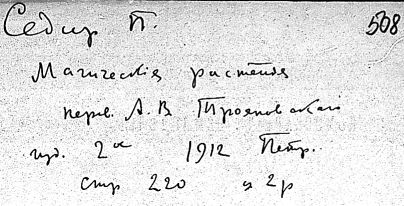 Седир П. 508
Магическія растенія
перев. А. В. Трояновскаго
изд. 2ое 1912 Петр.
стр 220 ц 2 р